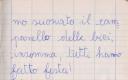 mo suonato il cam
panello della bici,
insomma tutti hanno
fatto festa!